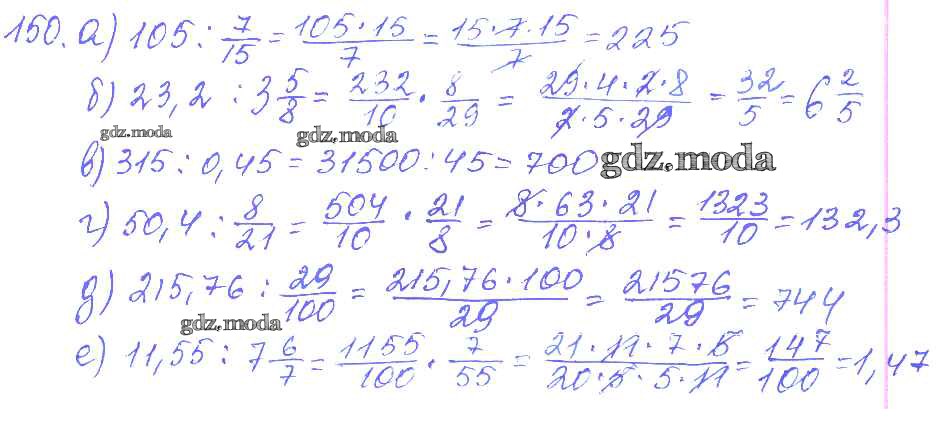 150. а) 105 : 7/15 = 105·15/7 = 15·7·15/7 = 225
б) 23,2 : 3 5/8 = 232/10 · 8/29 = 29·4·2·8/2·5·29 = 32/5 = 6 2/5
gdz.moda gdz.moda
в) 315 : 0,45 = 31500 : 45 = 700 gdz.moda
г) 50,4 : 8/21 = 504/10 · 21/8 = 8·63·21/10·8 = 1323/10 = 132,3
д) 215,76 : 29/100 = 215,76·100/29 = 21576/29 = 744
gdz.moda
е) 11,55 : 7 6/7 = 1155/100 · 7/55 = 21·11·7·5/20·5·5·11 = 147/100 = 1,47